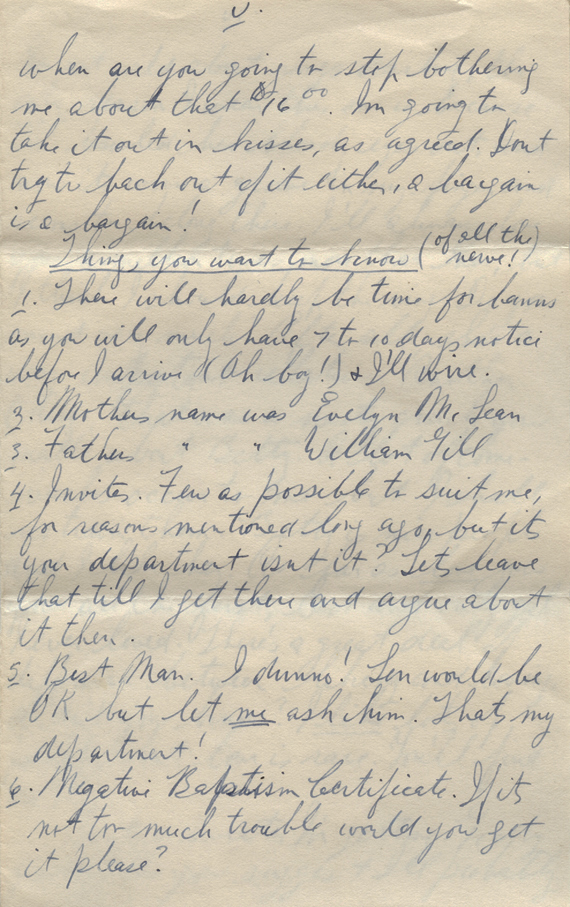 V.
when are you going to stop bothering
me about that $16 00. Im going to
take it out in kisses, as agreed. Dont
try to back out of it either, a bargain
is a bargain!
Things you want to know (of all the
nerve!)
1. There will hardly be time for banns
as you will only have 7 to 10 days notice
before I arrive (Oh boy!) & I'll wire.
2. Mothers name was Evelyn McLean
3. Fathers " " William Gill
4. Invites. Few as possible to suit me,
for reasons mentioned long ago, but its
your department isnt it? Lets leave
that till I get there and argue about
it then.
5. Best Man. I dunno! Len would be
OK but let me ask him. Thats my
department!
6. Negative Baptism Certificate. If its
not too much trouble would you get
it please?